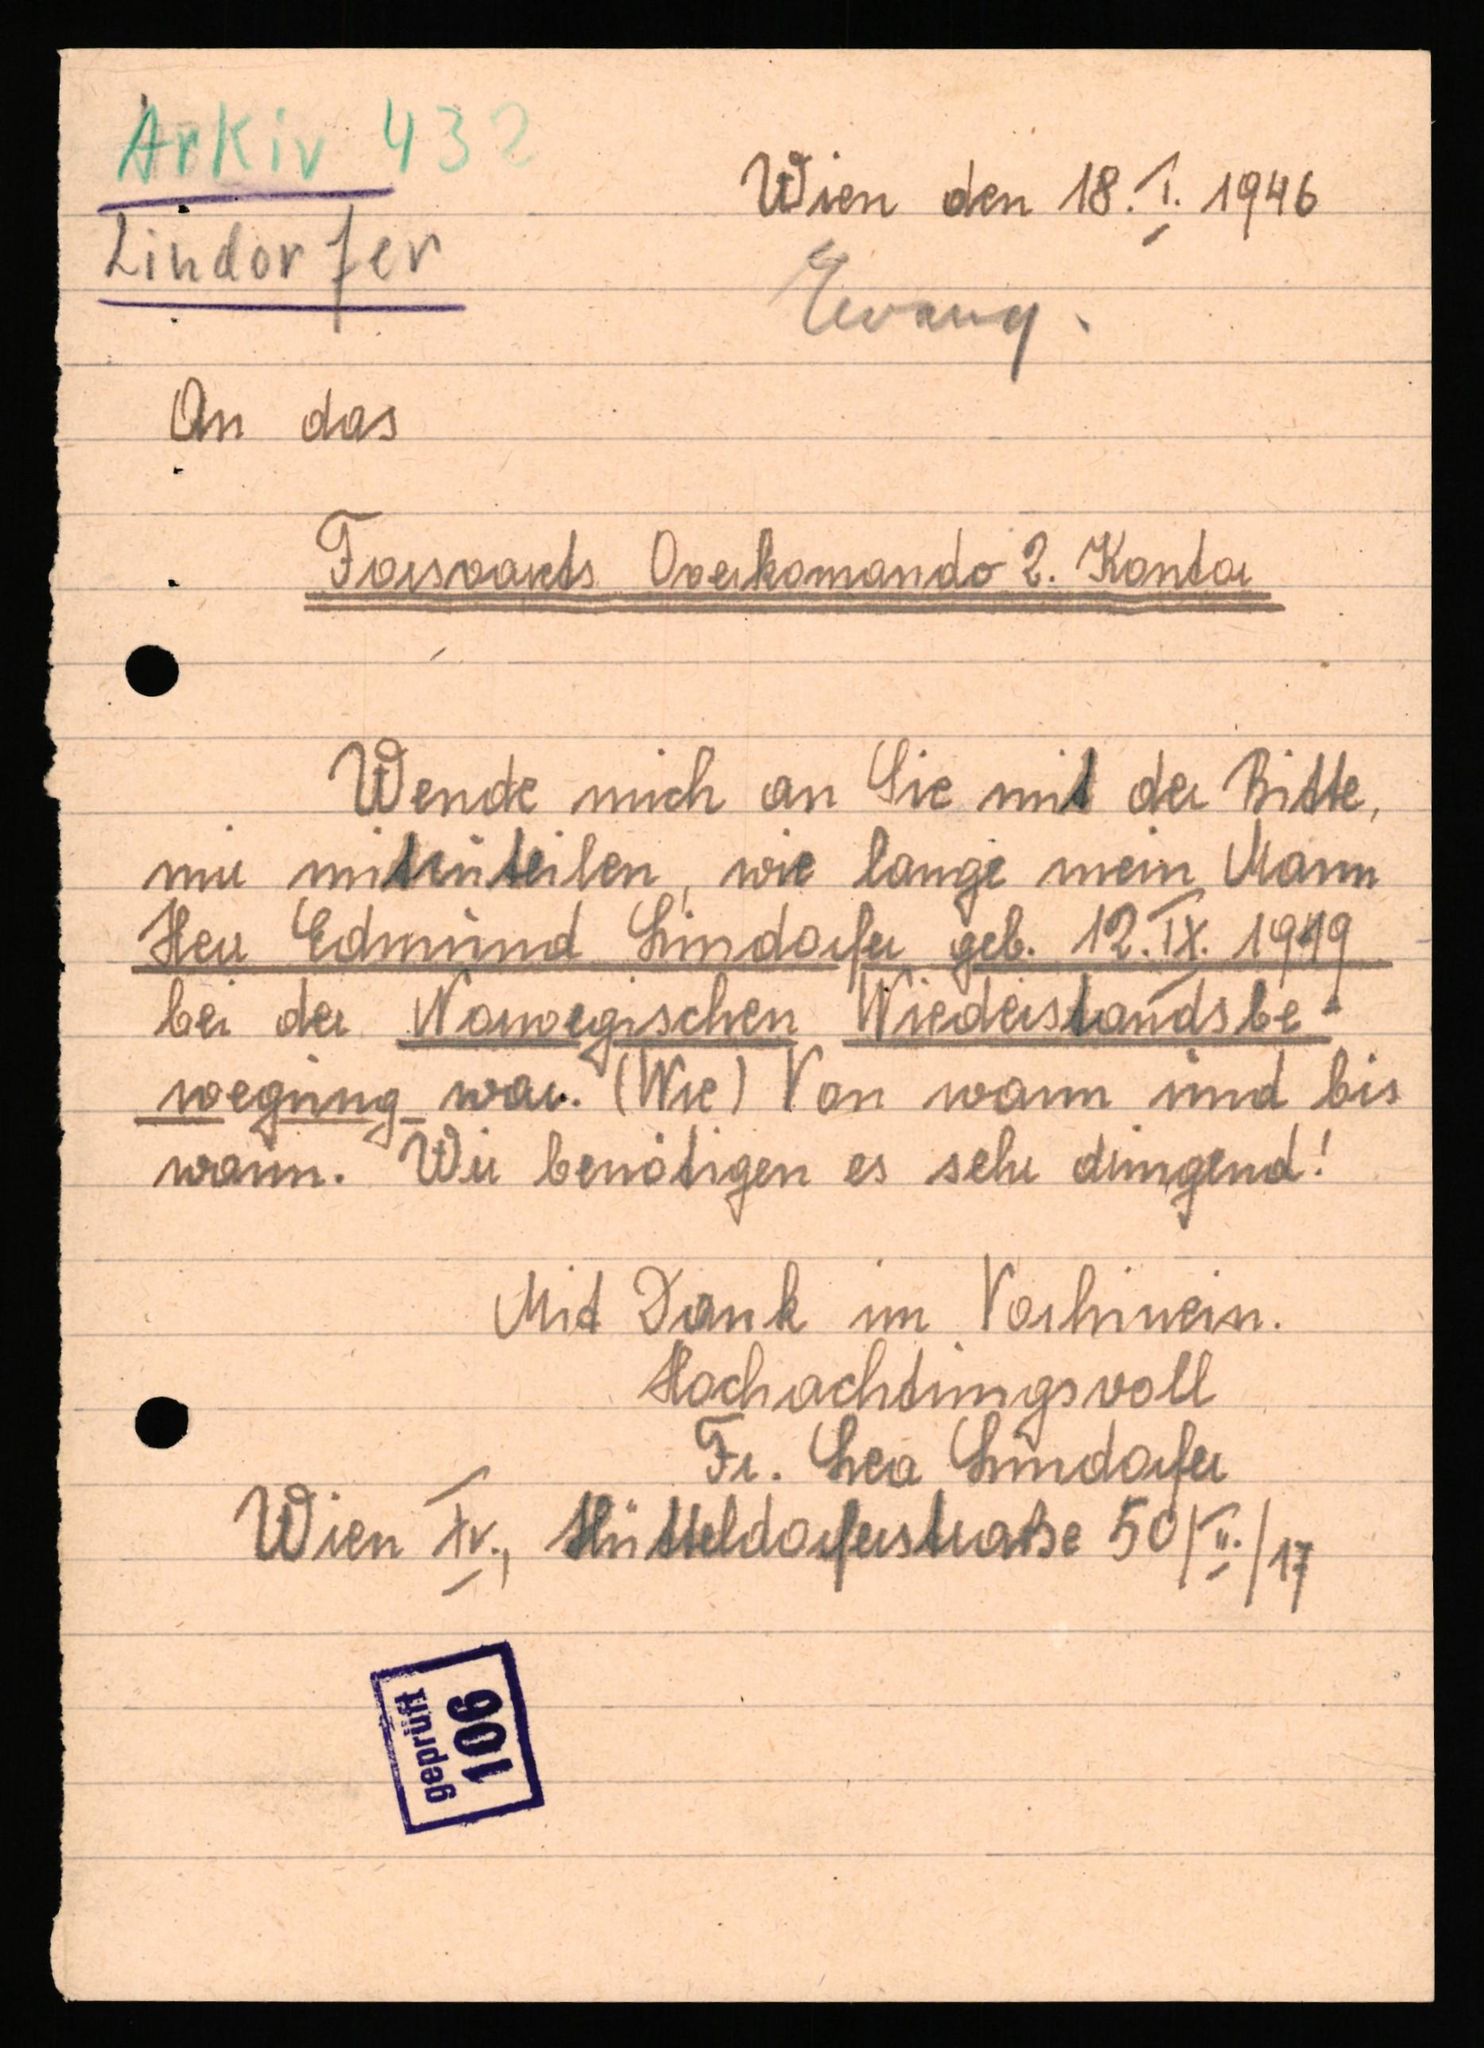 Arkiv 432
Wien den 18. I. 1946
Lindorfer
An das
Forsvarts Overkomando 2. Kontor
Wende mich an Sie mit der Bitte,
mir mitzuteilen, wie lange mein Mann
Herr Edmund Lindorfer geb. 12. IX. 1919
bei der Norwegischen Wiederstandsbe-
wegung war. (Wie) Von wann und bis
wann. Wir benötigen es sehr dringend!
Mit Dank im Vorhinein.
Hochachtungsvoll
Fr. Lea Lindorfer
Wien XV., Hütteldorferstraße 50/II./17
geprüft
106